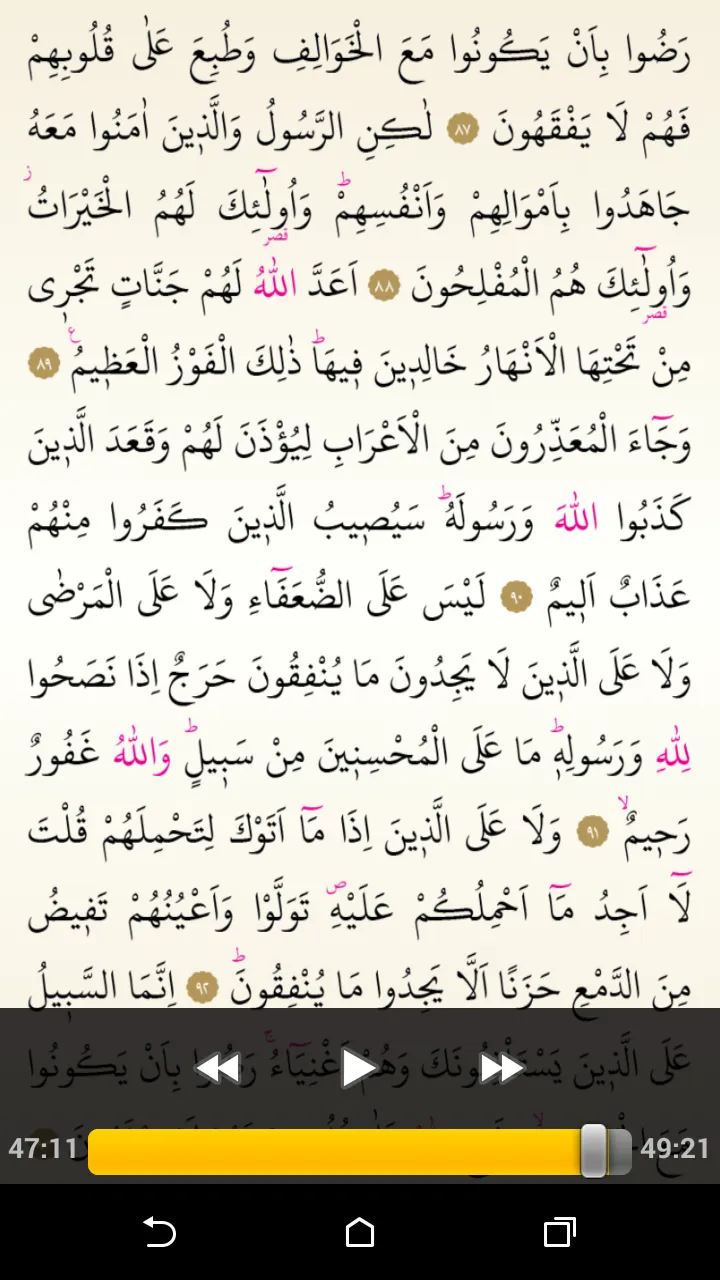 رَضُوا بِاَنْ يَكُونُوا مَعَ الْخَوَالِفِ وَطُبِعَ عَلٰى قُلُوبِهِمْ
فَهُمْ لَا يَفْقَهُونَ ٨٧ لٰكِنِ الرَّسُولُ وَالَّذ۪ينَ اٰمَنُوا مَعَهُ
جَاهَدُوا بِاَمْوَالِهِمْ وَاَنْفُسِهِمْۜ وَاُو۬لٰٓئِكَ لَهُمُ الْخَيْرَاتُۘ
وَاُو۬لٰٓئِكَ هُمُ الْمُفْلِحُونَ ٨٨ اَعَدَّ اللّٰهُ لَهُمْ جَنَّاتٍ تَجْر۪ى
مِنْ تَحْتِهَا الْاَنْهَارُ خَالِد۪ينَ ف۪يهَاۜ ذٰلِكَ الْفَوْزُ الْعَظ۪يمُ۟ ٨٩
وَجَٓاءَ الْمُعَذِّرُونَ مِنَ الْاَعْرَابِ لِيُؤْذَنَ لَهُمْ وَقَعَدَ الَّذ۪ينَ
كَذَبُوا اللّٰهَ وَرَسُولَهُۜ سَيُص۪يبُ الَّذ۪ينَ كَفَرُوا مِنْهُمْ
عَذَابٌ اَل۪يمٌ ٩٠ لَيْسَ عَلَى الضُّعَفَٓاءِ وَلَا عَلَى الْمَرْضٰى
وَلَا عَلَى الَّذ۪ينَ لَا يَجِدُونَ مَا يُنْفِقُونَ حَرَجٌ اِذَا نَصَحُوا
لِلّٰهِ وَرَسُولِه۪ۜ مَا عَلَى الْمُحْسِن۪ينَ مِنْ سَب۪يلٍۜ وَاللّٰهُ غَفُورٌ
رَح۪يمٌۙ ٩١ وَلَا عَلَى الَّذ۪ينَ اِذَا مَٓا اَتَوْكَ لِتَحْمِلَهُمْ قُلْتَ
لَٓا اَجِدُ مَٓا اَحْمِلُكُمْ عَلَيْهِۖ تَوَلَّوْا وَاَعْيُنُهُمْ تَف۪يضُ
مِنَ الدَّمْعِ حَزَنًا اَلَّا يَجِدُوا مَا يُنْفِقُونَۜ ٩٢ اِنَّمَا السَّب۪يلُ
عَلَى الَّذ۪ينَ يَسْتَأْذِنُونَكَ وَهُمْ اَغْنِيَٓاءُۚ رَضُوا بِاَنْ يَكُونُوا
47:11 49:21